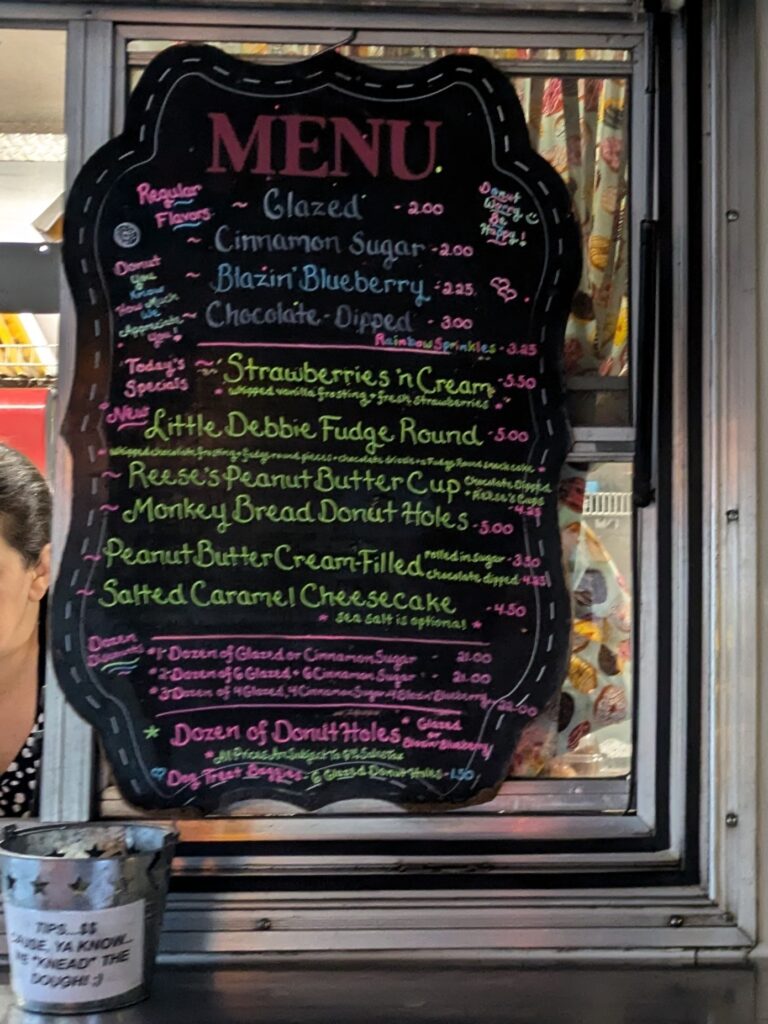 MENU
Regular Flavors
~ Glazed - 2.00
~ Cinnamon Sugar - 2.00
~ Blazin' Blueberry - 2.25
~ Chocolate-Dipped - 3.00
Rainbow Sprinkles - 3.25
Donut Worry Be Happy!
Donut You Know How Much We Appreciate You!
Today's Specials
~ Strawberries 'n Cream - 5.50
* whipped vanilla frosting + fresh strawberries *
"New" Little Debbie Fudge Round - 5.00
* whipped chocolate frosting + fudge round pieces + chocolate drizzle + a Fudge Round snack cake *
~ Reese's Peanut Butter Cup Chocolate Dipped + Reese's Cups - 4.25
~ Monkey Bread Donut Holes - 5.00
~ Peanut Butter Cream-Filled rolled in sugar - 3.50
chocolate dipped - 4.25
~ Salted Caramel Cheesecake - 4.50
* sea salt is optional *
Dozen Discounts
*1- Dozen of Glazed or Cinnamon Sugar - 21.00
*2- Dozen of 6 Glazed + 6 Cinnamon Sugar - 21.00
*3- Dozen of 4 Glazed, 4 Cinnamon Sugar + 4 Blazin' Blueberry - 22.00
* Dozen of Donut Holes * Glazed or Blazin' Blueberry
* All Prices Are Subject To 6% Sales Tax
Dog Treat Baggies - 6 Glazed Donut Holes - 1.50
TIPS...$$
CAUSE, YA KNOW...
WE "KNEAD" THE
DOUGH! ;)